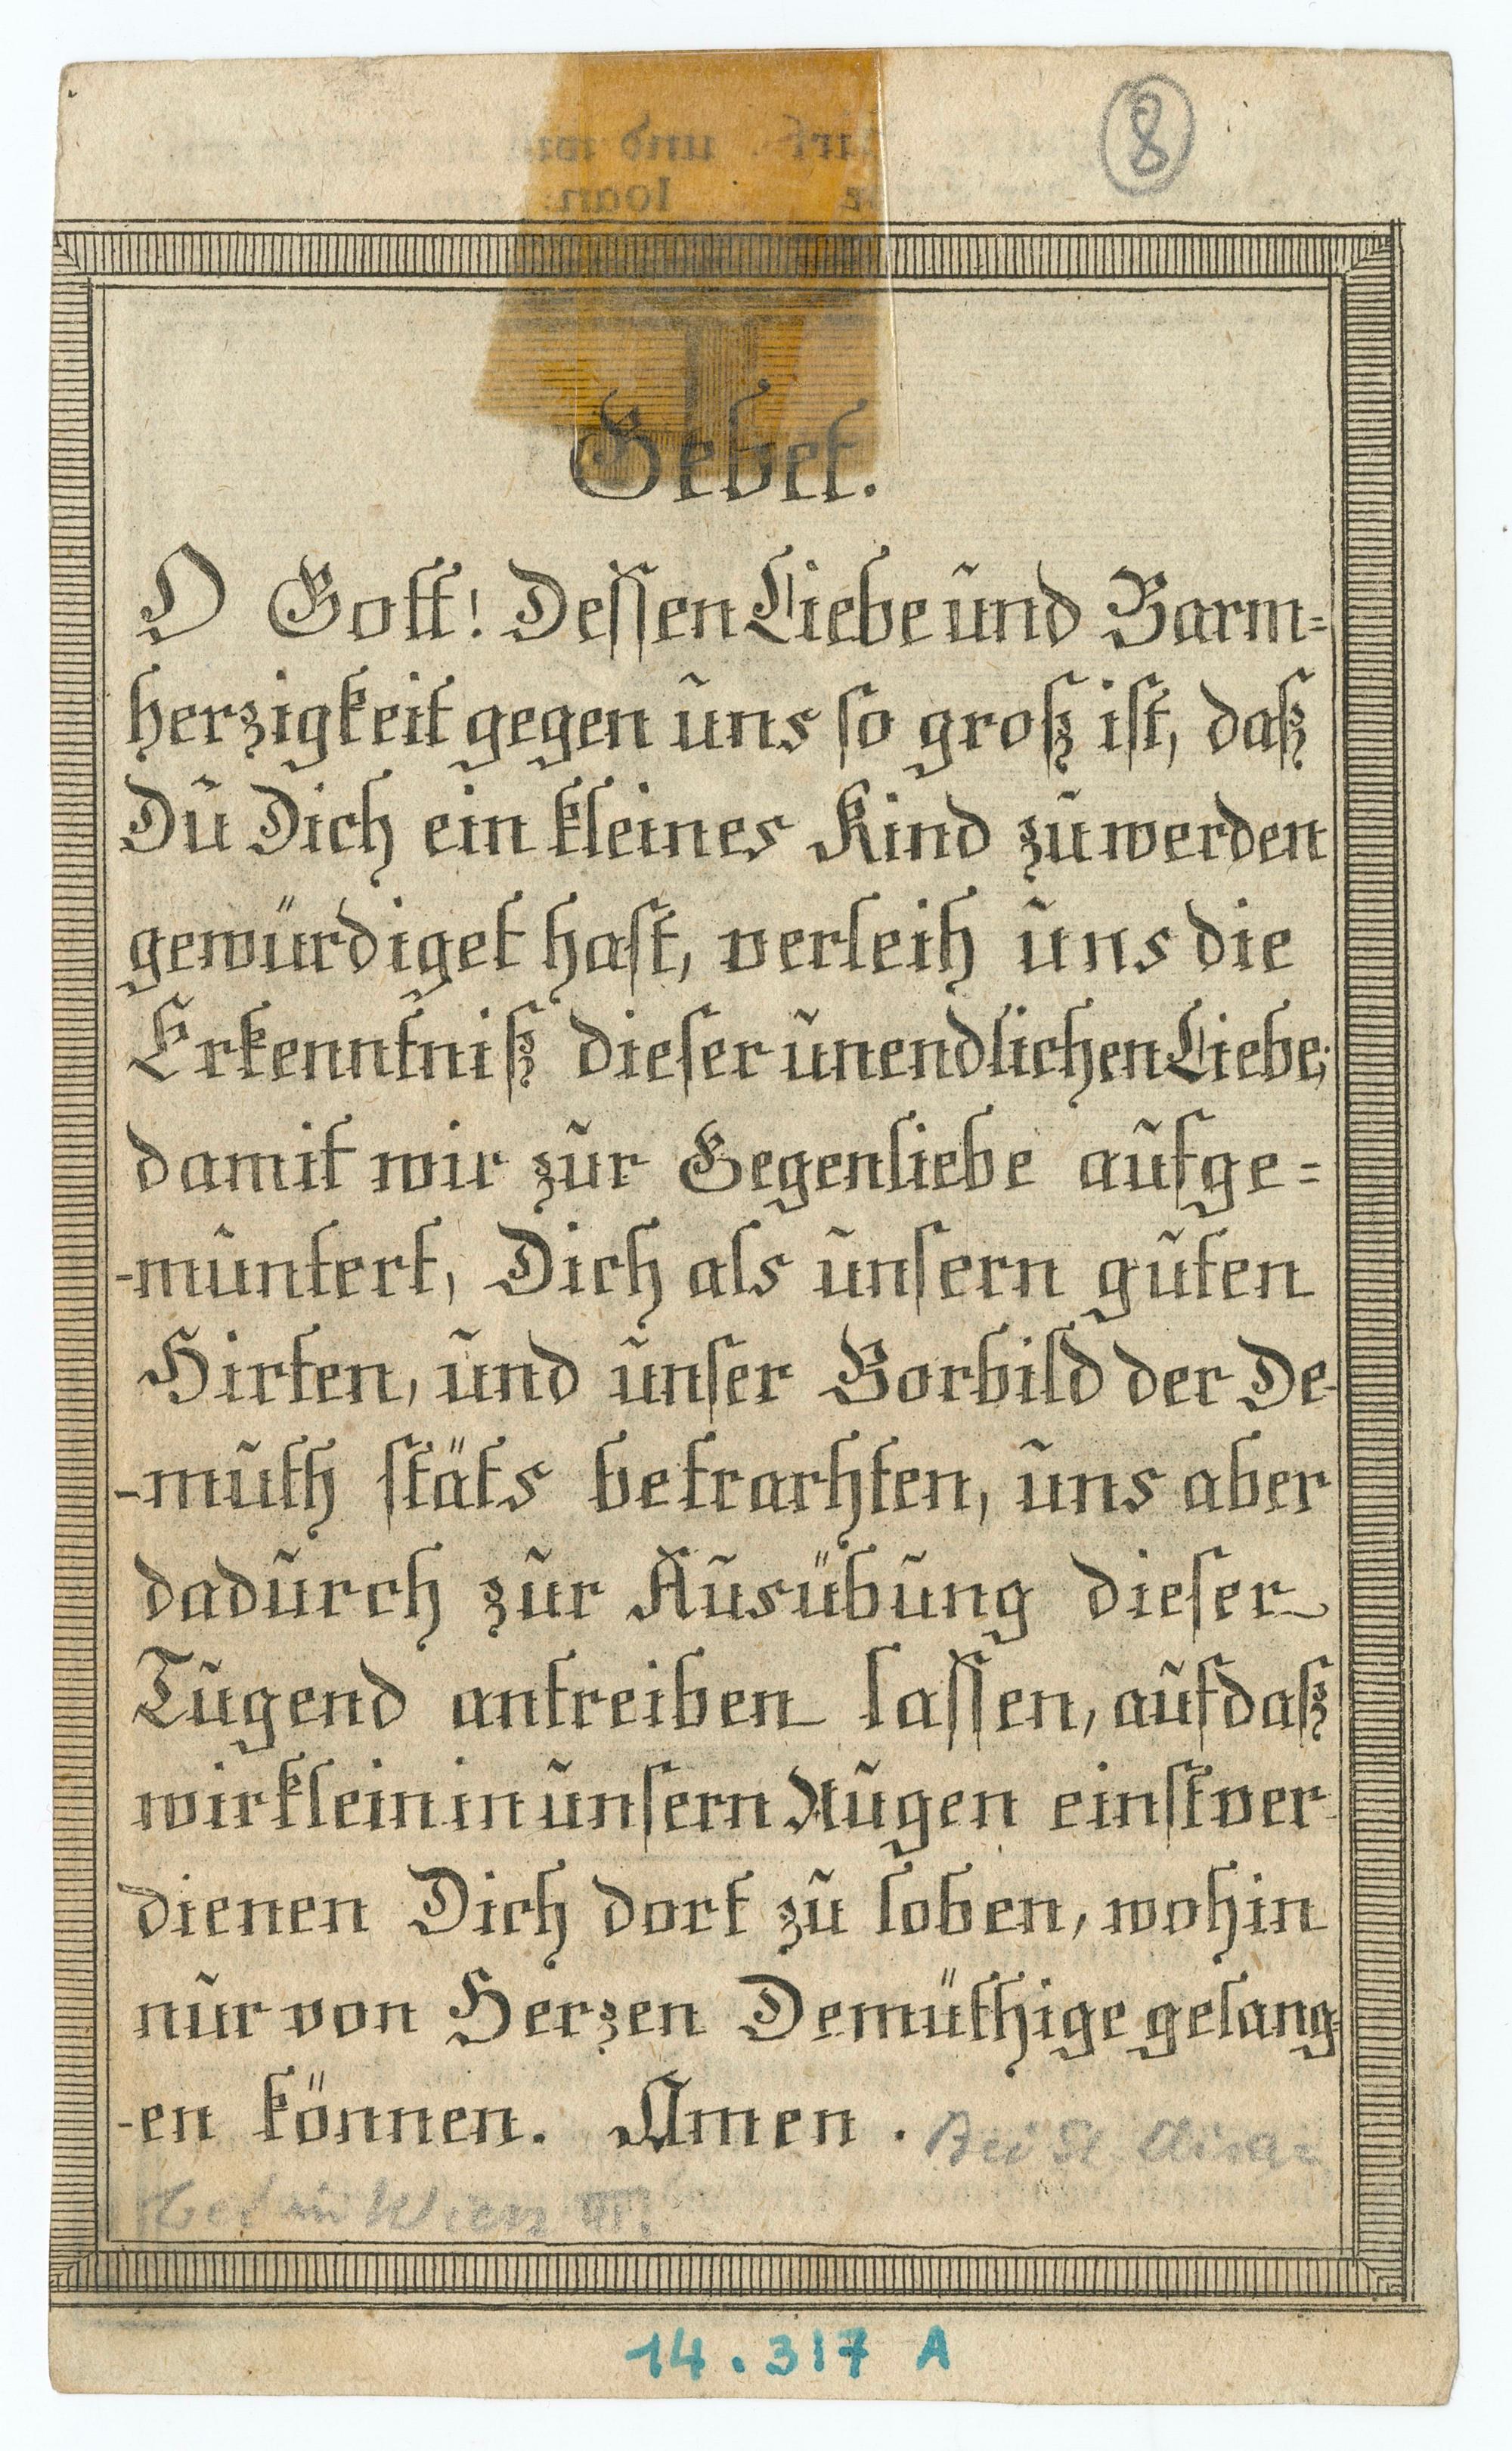 8
Gebet.
O Gott! Dessen Liebe und Barm=
herzigkeit gegen uns so groß ist, daß
Du Dich ein kleines Kind zu werden
gewürdiget hast, verleih uns die
Erkenntniß dieser unendlichen Liebe;
damit wir zur Gegenliebe aufge=
-muntert, Dich als unsern guten
Hirten, und unser Vorbild der De-
-muth stäts betrachten, uns aber
dadurch zur Ausübung dieser
Tugend antreiben lassen, aufdaß
wir klein in unsern Augen einst ver-
dienen Dich dort zu loben, wohin
nur von Herzen Demüthige gelang-
-en können. Amen. Bei St.
in Wien III.
14.317 A